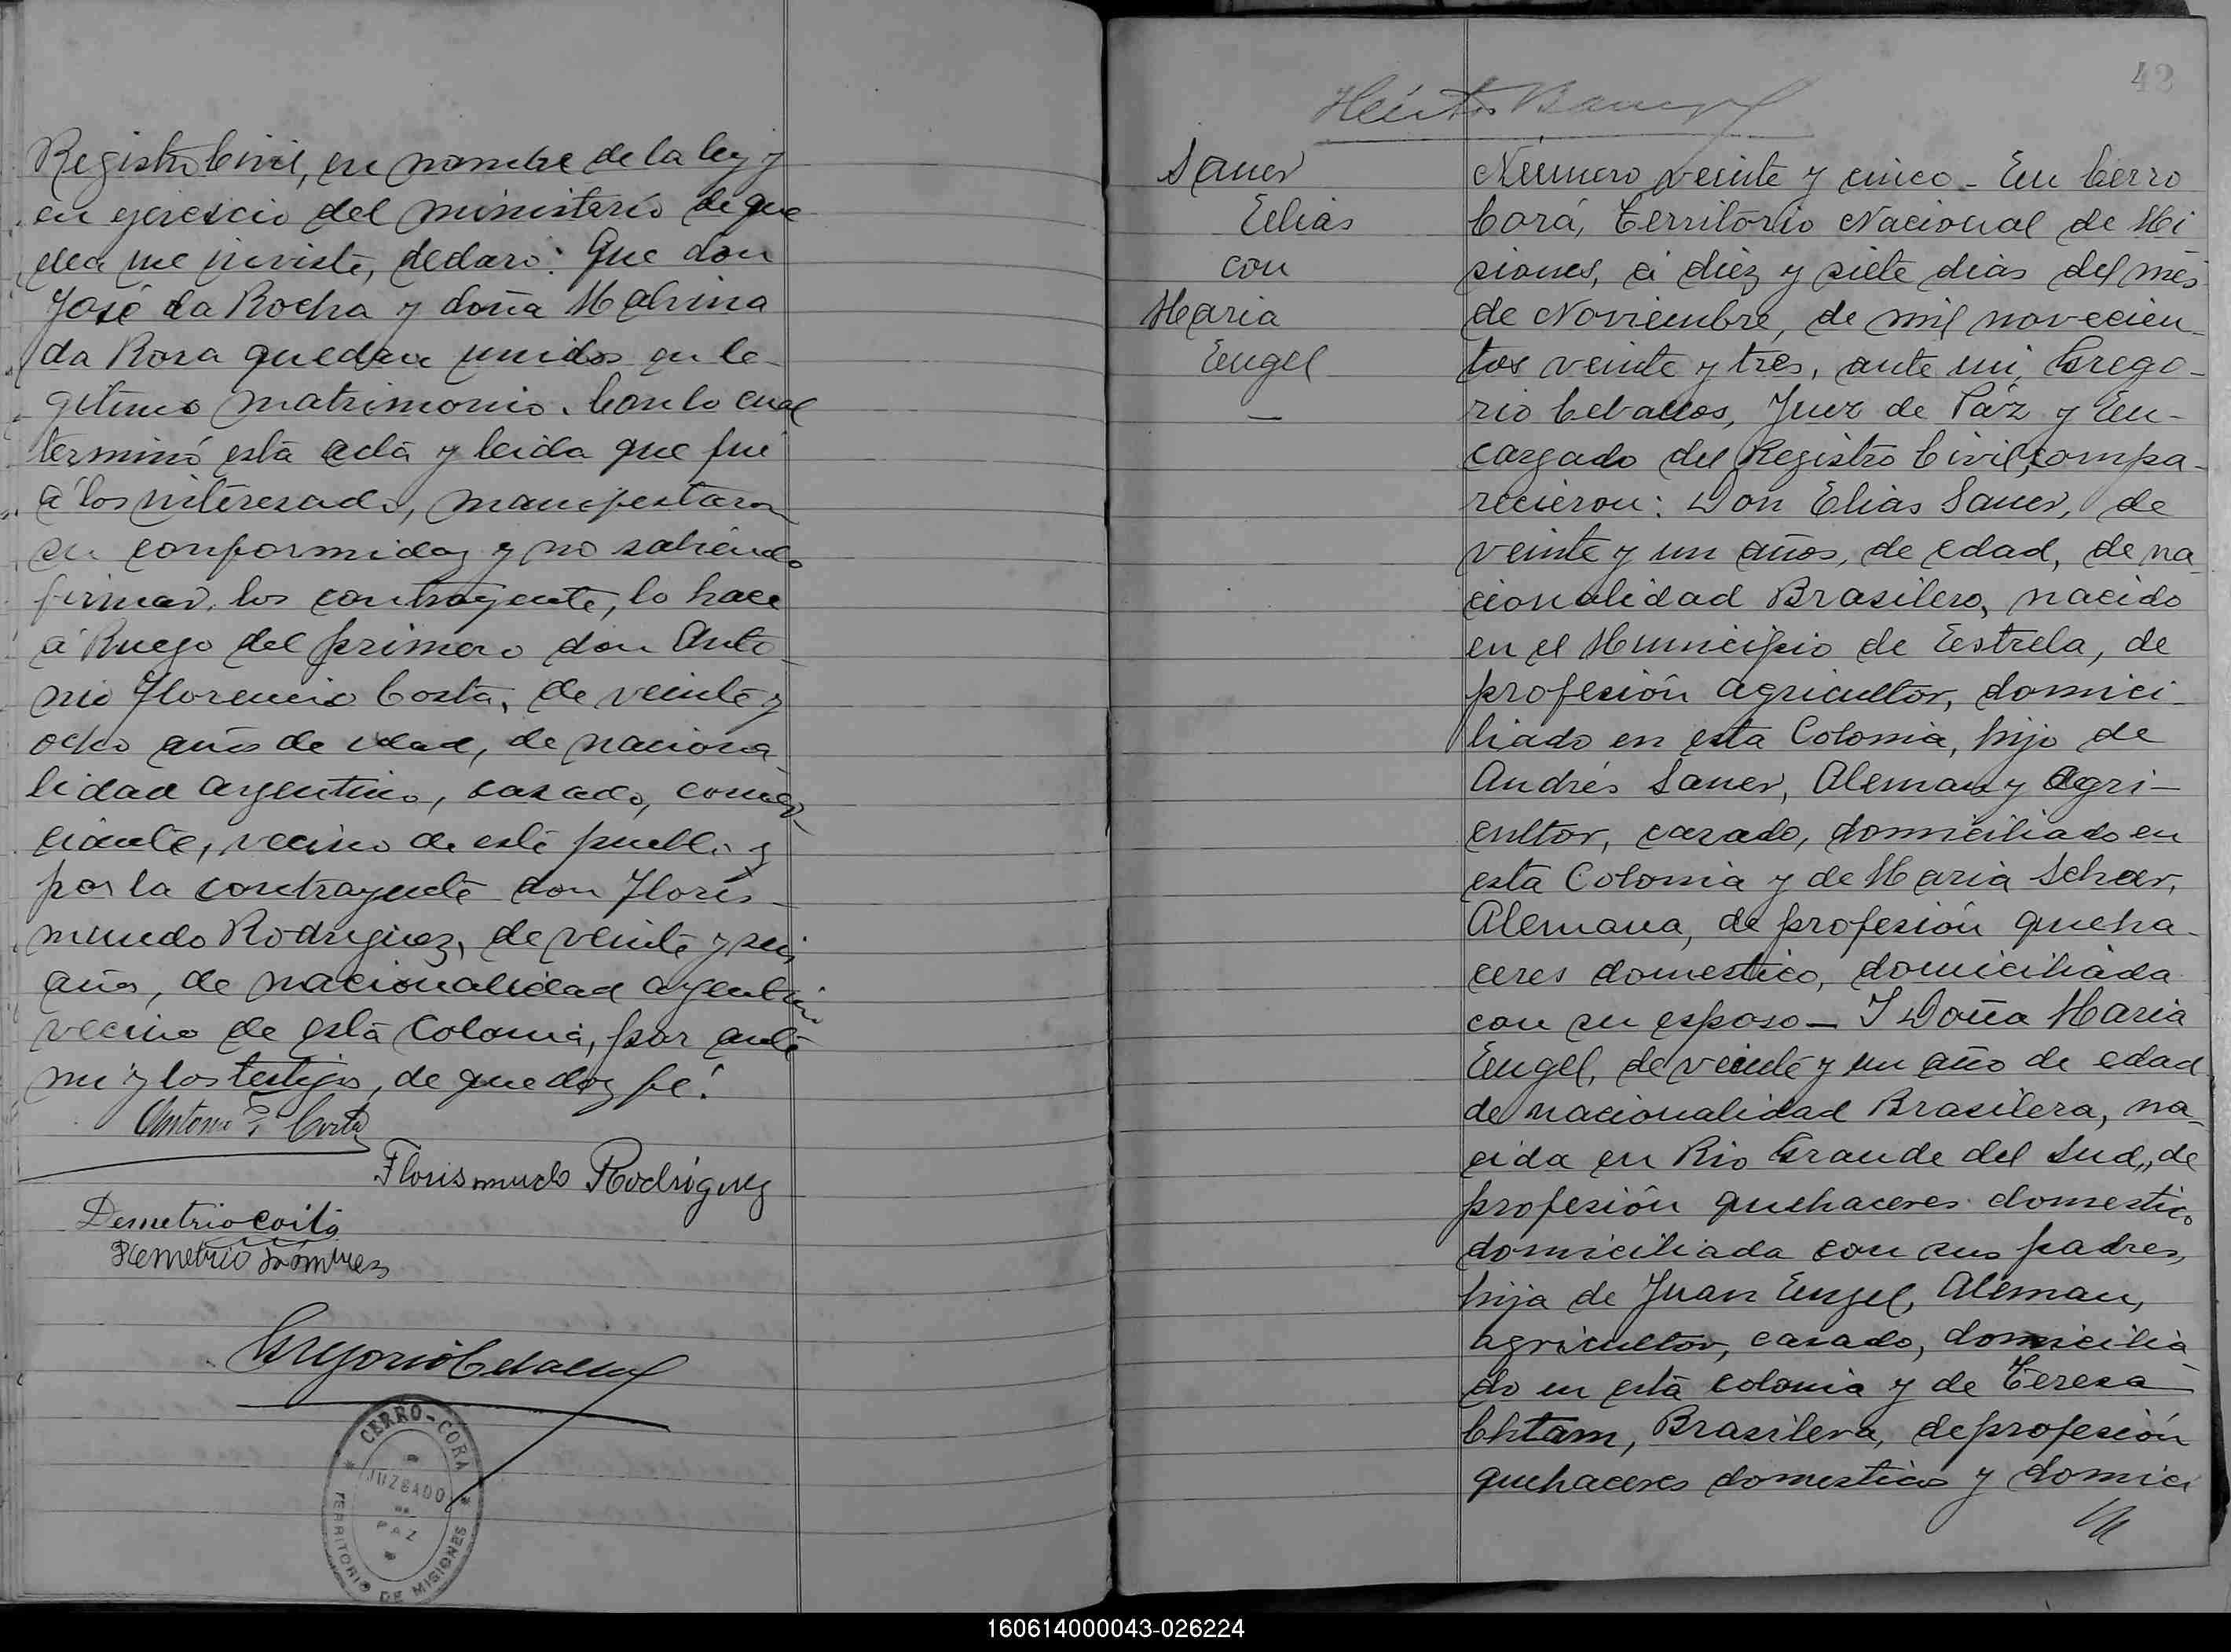 Registro Civil, en nombre de la ley y
en ejerescio del ministerio de que
ella me inviste, declaro: Que don
José da Rocha y doña Malvina
da Rosa quedan unidos en le-
gitimo matrimonio. Con lo cual
terminó esta acta y leida que fué
á los interesado, manifestaron
su conformidad y no sabiendo
firmar, los contrayente, lo hace
á Ruego del primero don Anto-
nio Florencio Costa, de veinte y
ocho años de edad, de naciona
lidad argentino, casado, comer-
ciante, vecino de este pueblo y
por la contrayente don Floris-
mundo Rodriguez, de veinte y seis
años, de nacionalidad argentino
vecino de esta Colonia, por ante
mi y los testigos, de que doy fé.
Antonio F. Costa
Florismundo Rodríguez
Demetrio Coitá
Demetrio
Gregorio Ceballos
CERRO-CORA
JUZGADO
DE
PAZ
TERRITORIO DE MISIONES
42
Sauer
Eelias
con
Maria
Eengel
Número veinte y cinco - En Cerro
Corá, Territorio Nacional de Mi
siones, á diéz y siete dias del més
de Noviembre, de mil novecien-
tos veinte y tres, ante mi, Grego-
rio Ceballos, Juez de Páz y En-
cargado del Registro Civil, compa-
recieron: Don Elias Sauer, de
veinte y un años, de edad, de na
cionalidad Brasilero, nacido
en el Municipio de Eestrela, de
profesión agricultor, domici-
liado en esta Colonia, hijo de
Andrés Sauer, Aleman y Agri-
cultor, casado, domiciliado en
esta Colonia y de Maria Schar,
Alemana, de profesión queha-
ceres domestico, domiciliada
con su esposo - I Doña Maria
Eengel, de veinte y un año de edad
de nacionalidad Brasilera, na-
cida en Rio Grande del Sud, de
profesión quehaceres domestico
domiciliada con sus padres,
hija de Juan Eengel, Aleman,
agricultor, casado, domicilia-
do en esta colonia y de Teresa
Chtam, Brasilera, de profesión
quehaceres domestico y domici
160614000043-026224